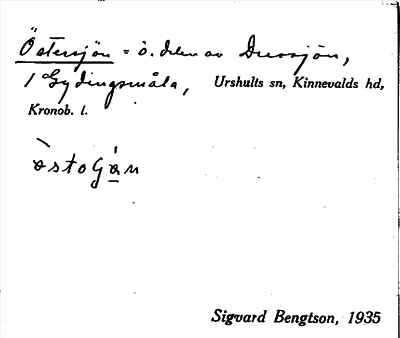 Östersjön = ö. delen av Dversjön,
1 Gydingsmåla, Urshults sn, Kinnevalds hd,
Kronob. l.
Sigvard Bengtson, 1935